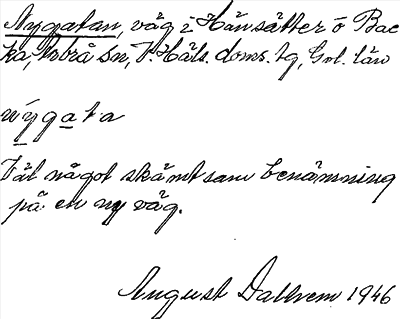 Nygatan, väg i Hänsätter o Bac
ka, Arbrå sn, V. Häls. doms. tg, Gvl. län
nýgata
Väl något skämtsam benämning
på en ny väg.
August Dallrem 1946